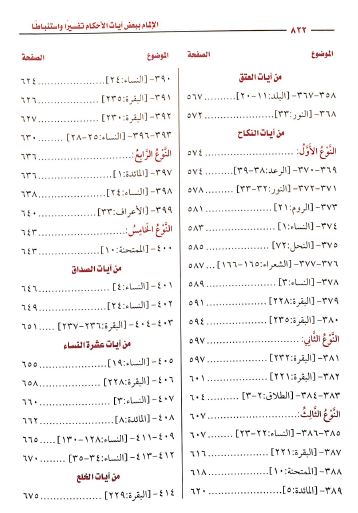 ٨٢٢ الإلمام ببعض آيات الأحكام تفسيرًا واستنباطًا
الموضوع الصفحة
من آيات العتق
٣٥٨-٣٦٧- [البلد:١١-٢٠] ٥٦٧
٣٦٨- [النور:٣٣] ٥٧٢
من آيات النكاح
النَّوْعُ الأَوَّلُ: ٥٧٤
٣٦٩-٣٧٠- [الرعد:٣٨-٣٩] ٥٧٤
٣٧١-٣٧٢- [النور:٣٢-٣٣] ٥٧٨
٣٧٣- [الروم:٢١] ٥٨١
٣٧٤- [النساء:١] ٥٨٣
٣٧٥- [النحل:٧٢] ٥٨٥
٣٧٦-٣٧٧- [الشعراء:١٦٥-١٦٦] ٥٨٧
٣٧٨- [النساء:٣] ٥٨٩
٣٧٩- [البقرة:٢٢٨] ٥٩١
٣٨٠- [البقرة:٢٣٥] ٥٩٤
النَّوْعُ الثَّانِي: ٥٩٧
٣٨١- [البقرة:٢٣٢] ٥٩٧
٣٨٢- [البقرة:٢٢١] ٦٠١
٣٨٣-٣٨٤- [الطلاق:٢-٣] ٦٠٤
النَّوْعُ الثَّالِثُ: ٦٠٧
٣٨٥-٣٨٦- [النساء:٢٢-٢٣] ٦٠٧
٣٨٧- [البقرة:٢٢١] ٦١٦
٣٨٨- [الممتحنة:١٠] ٦١٨
٣٨٩- [المائدة:٥] ٦٢٠
الموضوع الصفحة
٣٩٠- [النساء:٢٤] ٦٢٤
٣٩١- [البقرة:٢٣٥] ٦٢٦
٣٩٢- [البقرة:٢٣٠] ٦٢٧
٣٩٣-٣٩٦- [النساء:٢٥-٢٨] ٦٣٠
النَّوْعُ الرَّابِعُ: ٦٣٦
٣٩٧- [المائدة:١] ٦٣٦
٣٩٨- [النساء:٢٤] ٦٣٨
٣٩٩- [الأعراف:٣٣] ٦٤٠
النَّوْعُ الخَامِسُ: ٦٤٣
٤٠٠- [الممتحنة:١٠] ٦٤٣
من آيات الصداق
٤٠١- [النساء:٤] ٦٤٦
٤٠٢- [النساء:٢٤] ٦٤٩
٤٠٣-٤٠٤- [البقرة:٢٣٦-٢٣٧] ٦٥١
من آيات عشرة النساء
٤٠٥- [النساء:١٩] ٦٥٥
٤٠٦- [البقرة:٢٢٨] ٦٥٨
٤٠٧- [النساء:٣] ٦٦٠
٤٠٨- [المائدة:٨] ٦٦٢
٤٠٩-٤١١- [النساء:١٢٨-١٣٠] ٦٦٥
٤١٢-٤١٣- [النساء:٣٤-٣٥] ٦٧٠
من آيات الخلع
٤١٤- [البقرة:٢٢٩] ٦٧٥